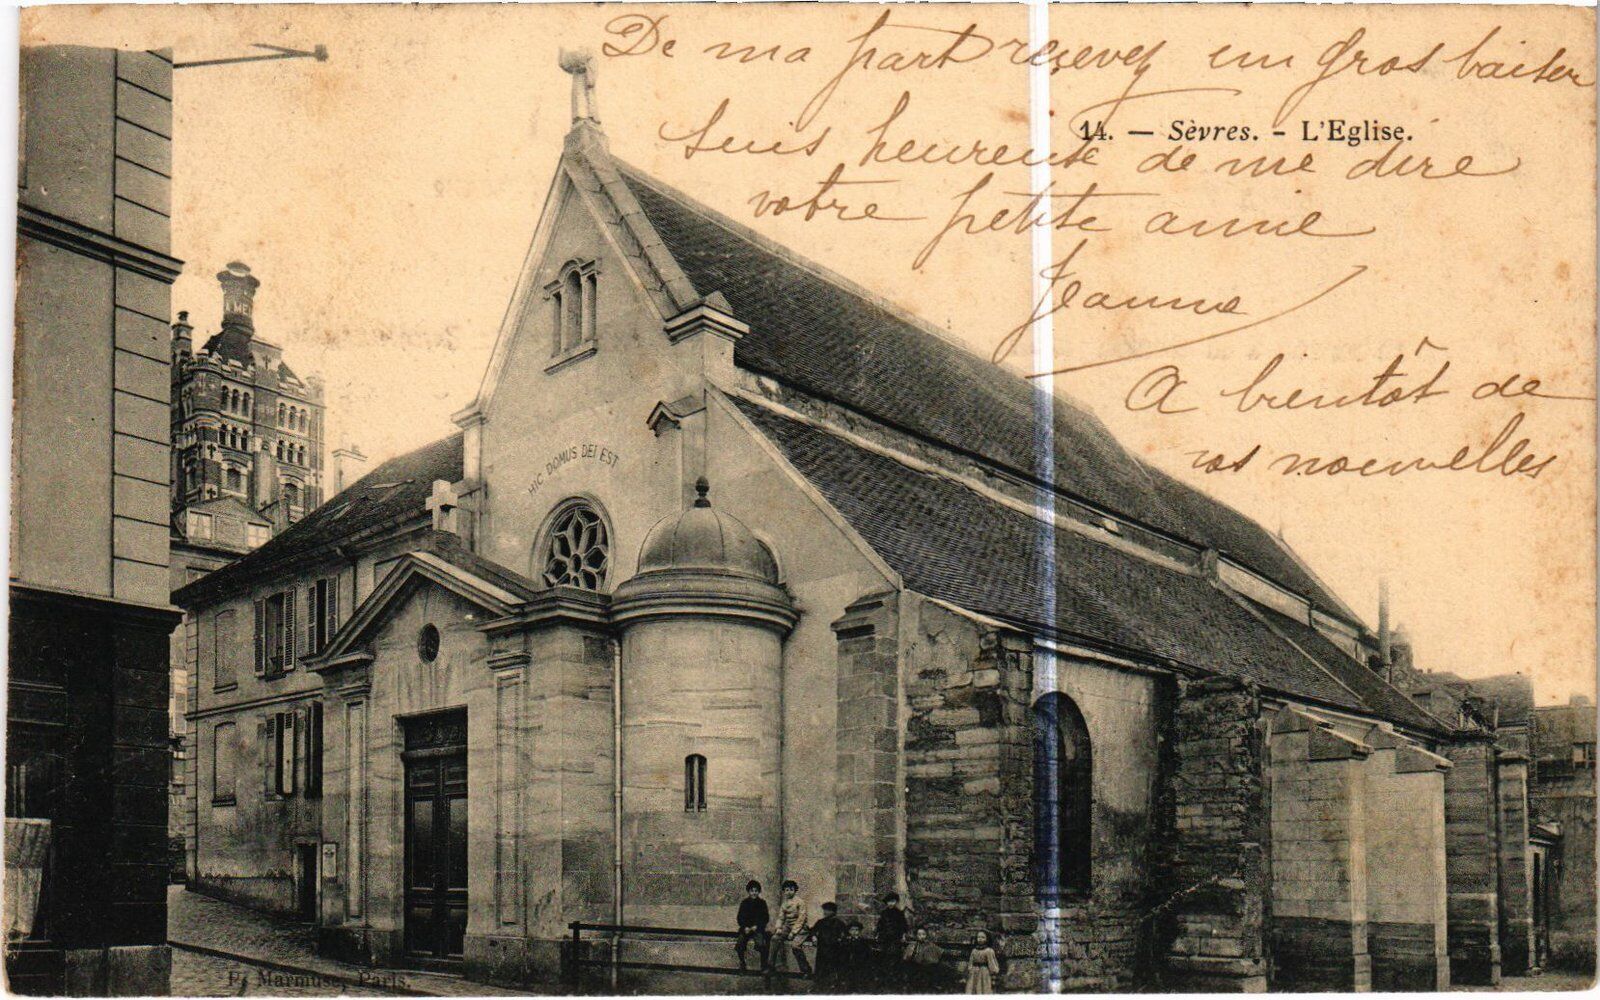 De ma part recevez un gros baiser
suis heureuse de me dire
votre petite amie
Jeanne
A bientôt de
vos nouvelles
14. — Sèvres. - L'Eglise.
HIC DOMUS DEI EST
F. Marmuse, Paris.